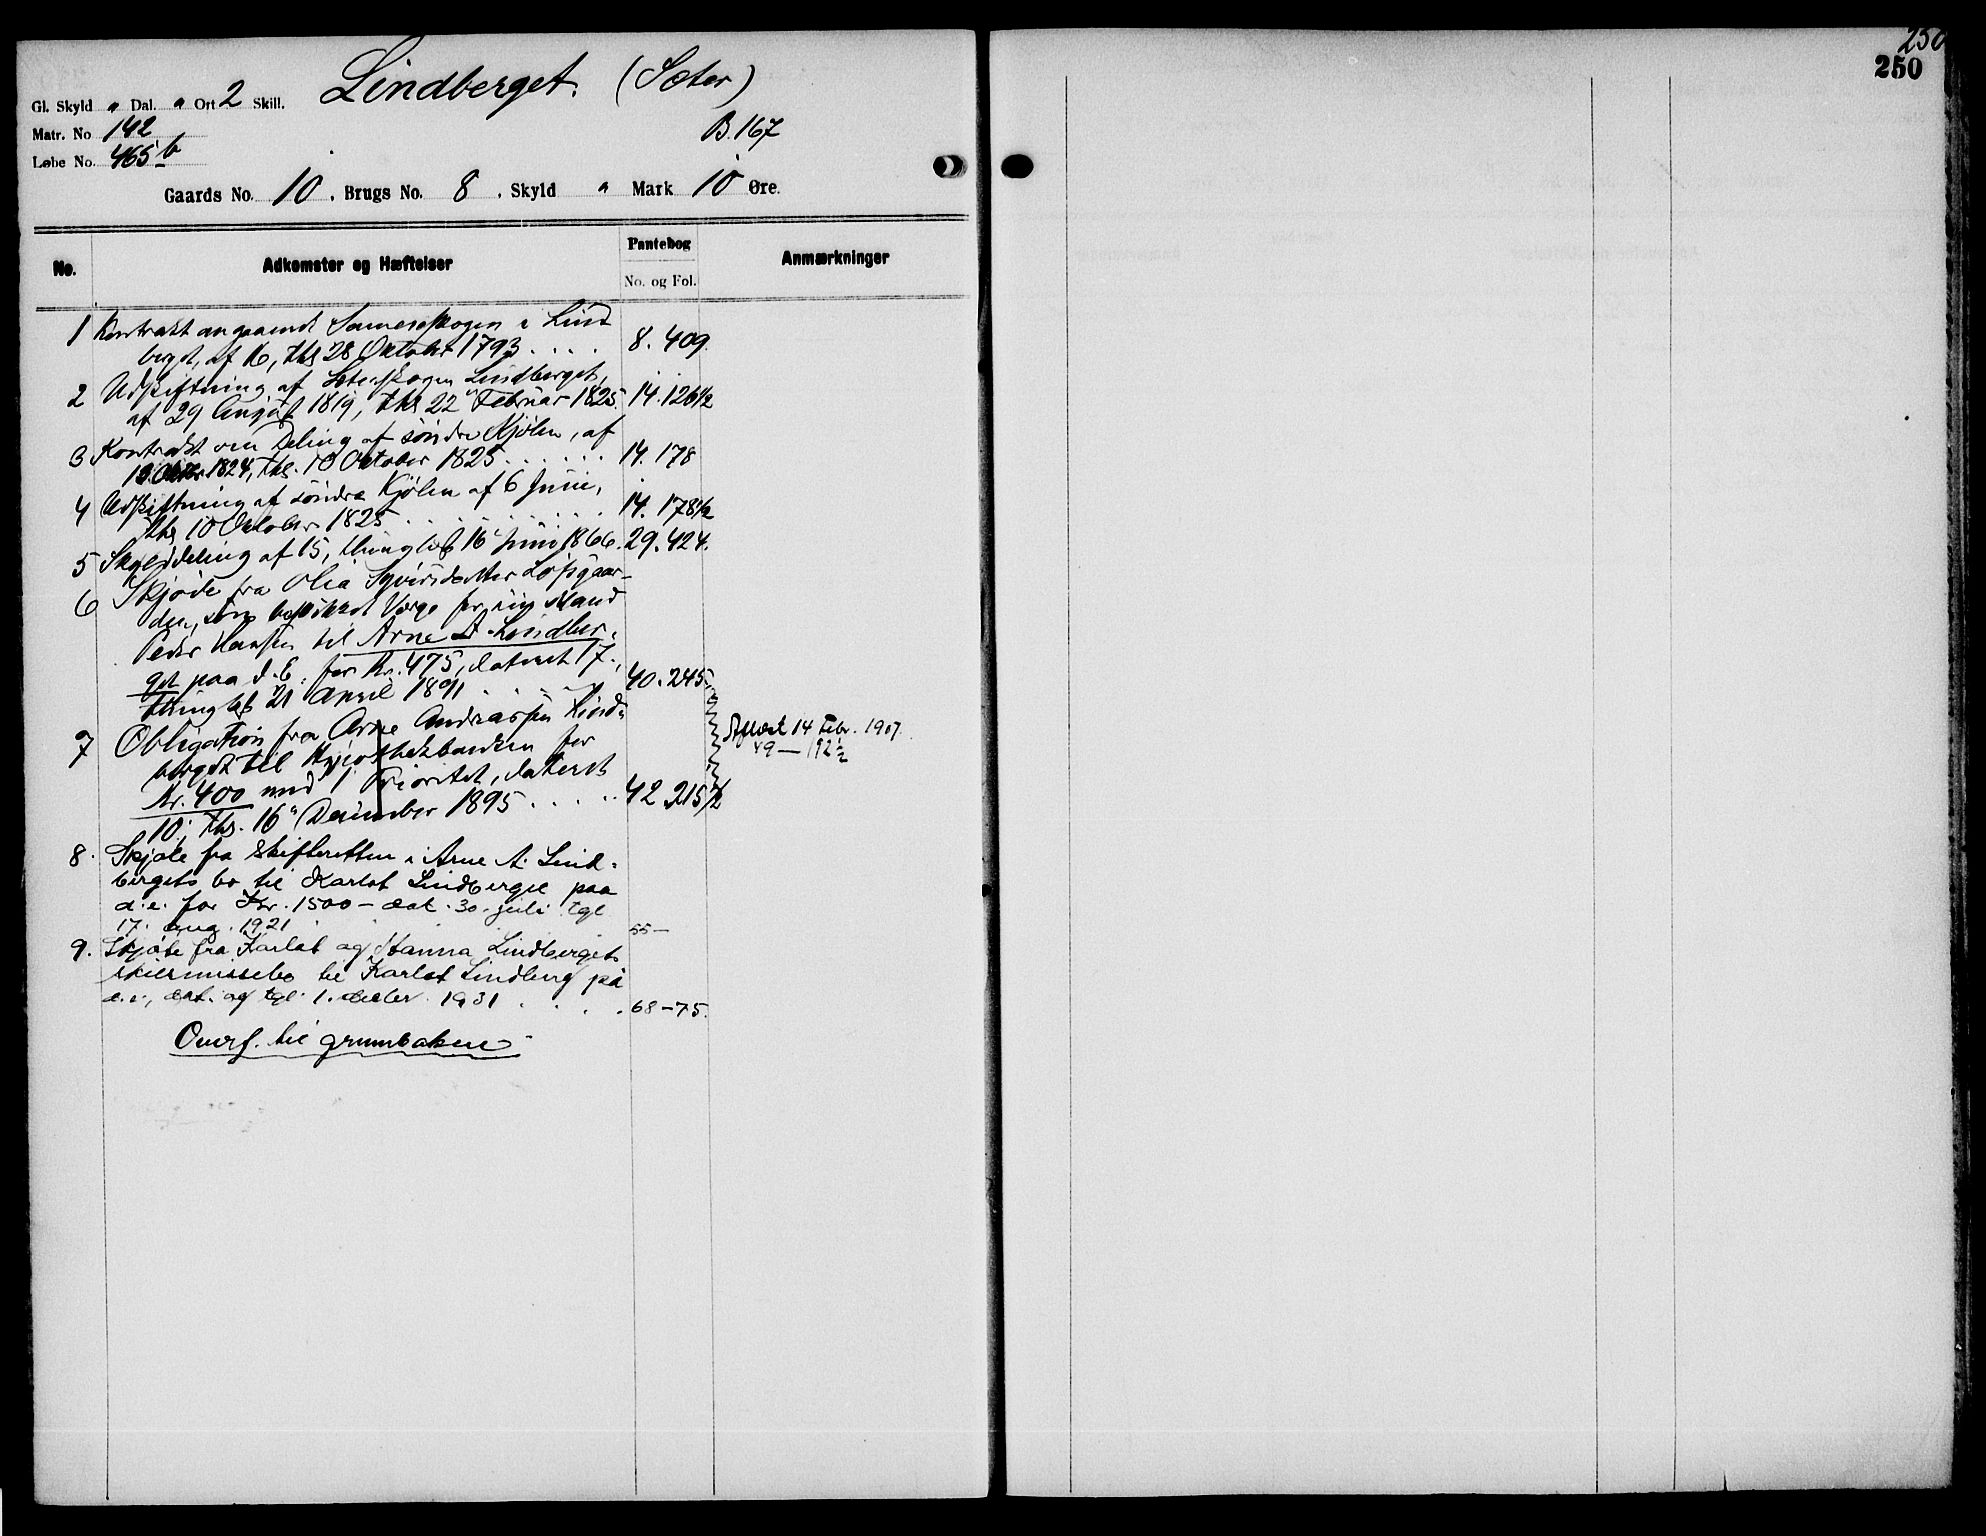 250
250
Lindberget. (Sæter)
Gl. Skyld " Dal. " Ort 2 Skill.
Matr. No 142
B. 167
Løbe No. 465 b
Gaards No. 10, Brugs No. 8, Skyld " Mark 10 Øre.
No. Adkomster og Hæftelser Pantebog No. og Fol. Anmærkninger
1 Kontrakt angaaende i Lind
berget, af 16, thl 28 Oktober 1793 .... 8. 409.
2 Udskiftning af Lindberget,
af 29 August 1819, thl 22 Februar 1825. 14. 126½
3 Kontrakt om Deling af søndre Kjølen, af
1824, thl. 10 Oktober 1825 ...... 14. 178
4 Udskiftning af søndre Kjølen af 6 Juni,
thl 10 Oktober 1825 ....... 14. 178½
5 Skylddeling af 15, thinglæst 16 Juni 1866. 29. 424.
6 Skjøde fra Olia Syversdatter
den, som Værge for sin Mand
Peder Hansen til Arne A. Lindber-
get paa d. E. for Kr. 475, dateret 17.,
thinglæst 21 April 1891 .... 40. 245
7 Obligation fra Arne Andreassen Lind-
berget til Hypothekbanken for
Kr. 400 med 1 Prioritet, dateret
10; thl. 16 December 1895 ..... 42. 215½
Aflæst 14 Febr. 1907.
49 — 192½
8. Skjøte fra skifteretten i Arne A. Lind-
bergets bo til Karlot Lindberget paa
d.e. for Kr. 1500 – dat. 30. juli tgl
17. aug. 1921 55 —
9. Skjøte fra Karlot og Hanna Lindbergets
skilsmissebo til Karlot Lindberg på
d.e., dat. og tgl. 1. decbr. 1931 .... 68 – 75.
Overf. til grunnboken